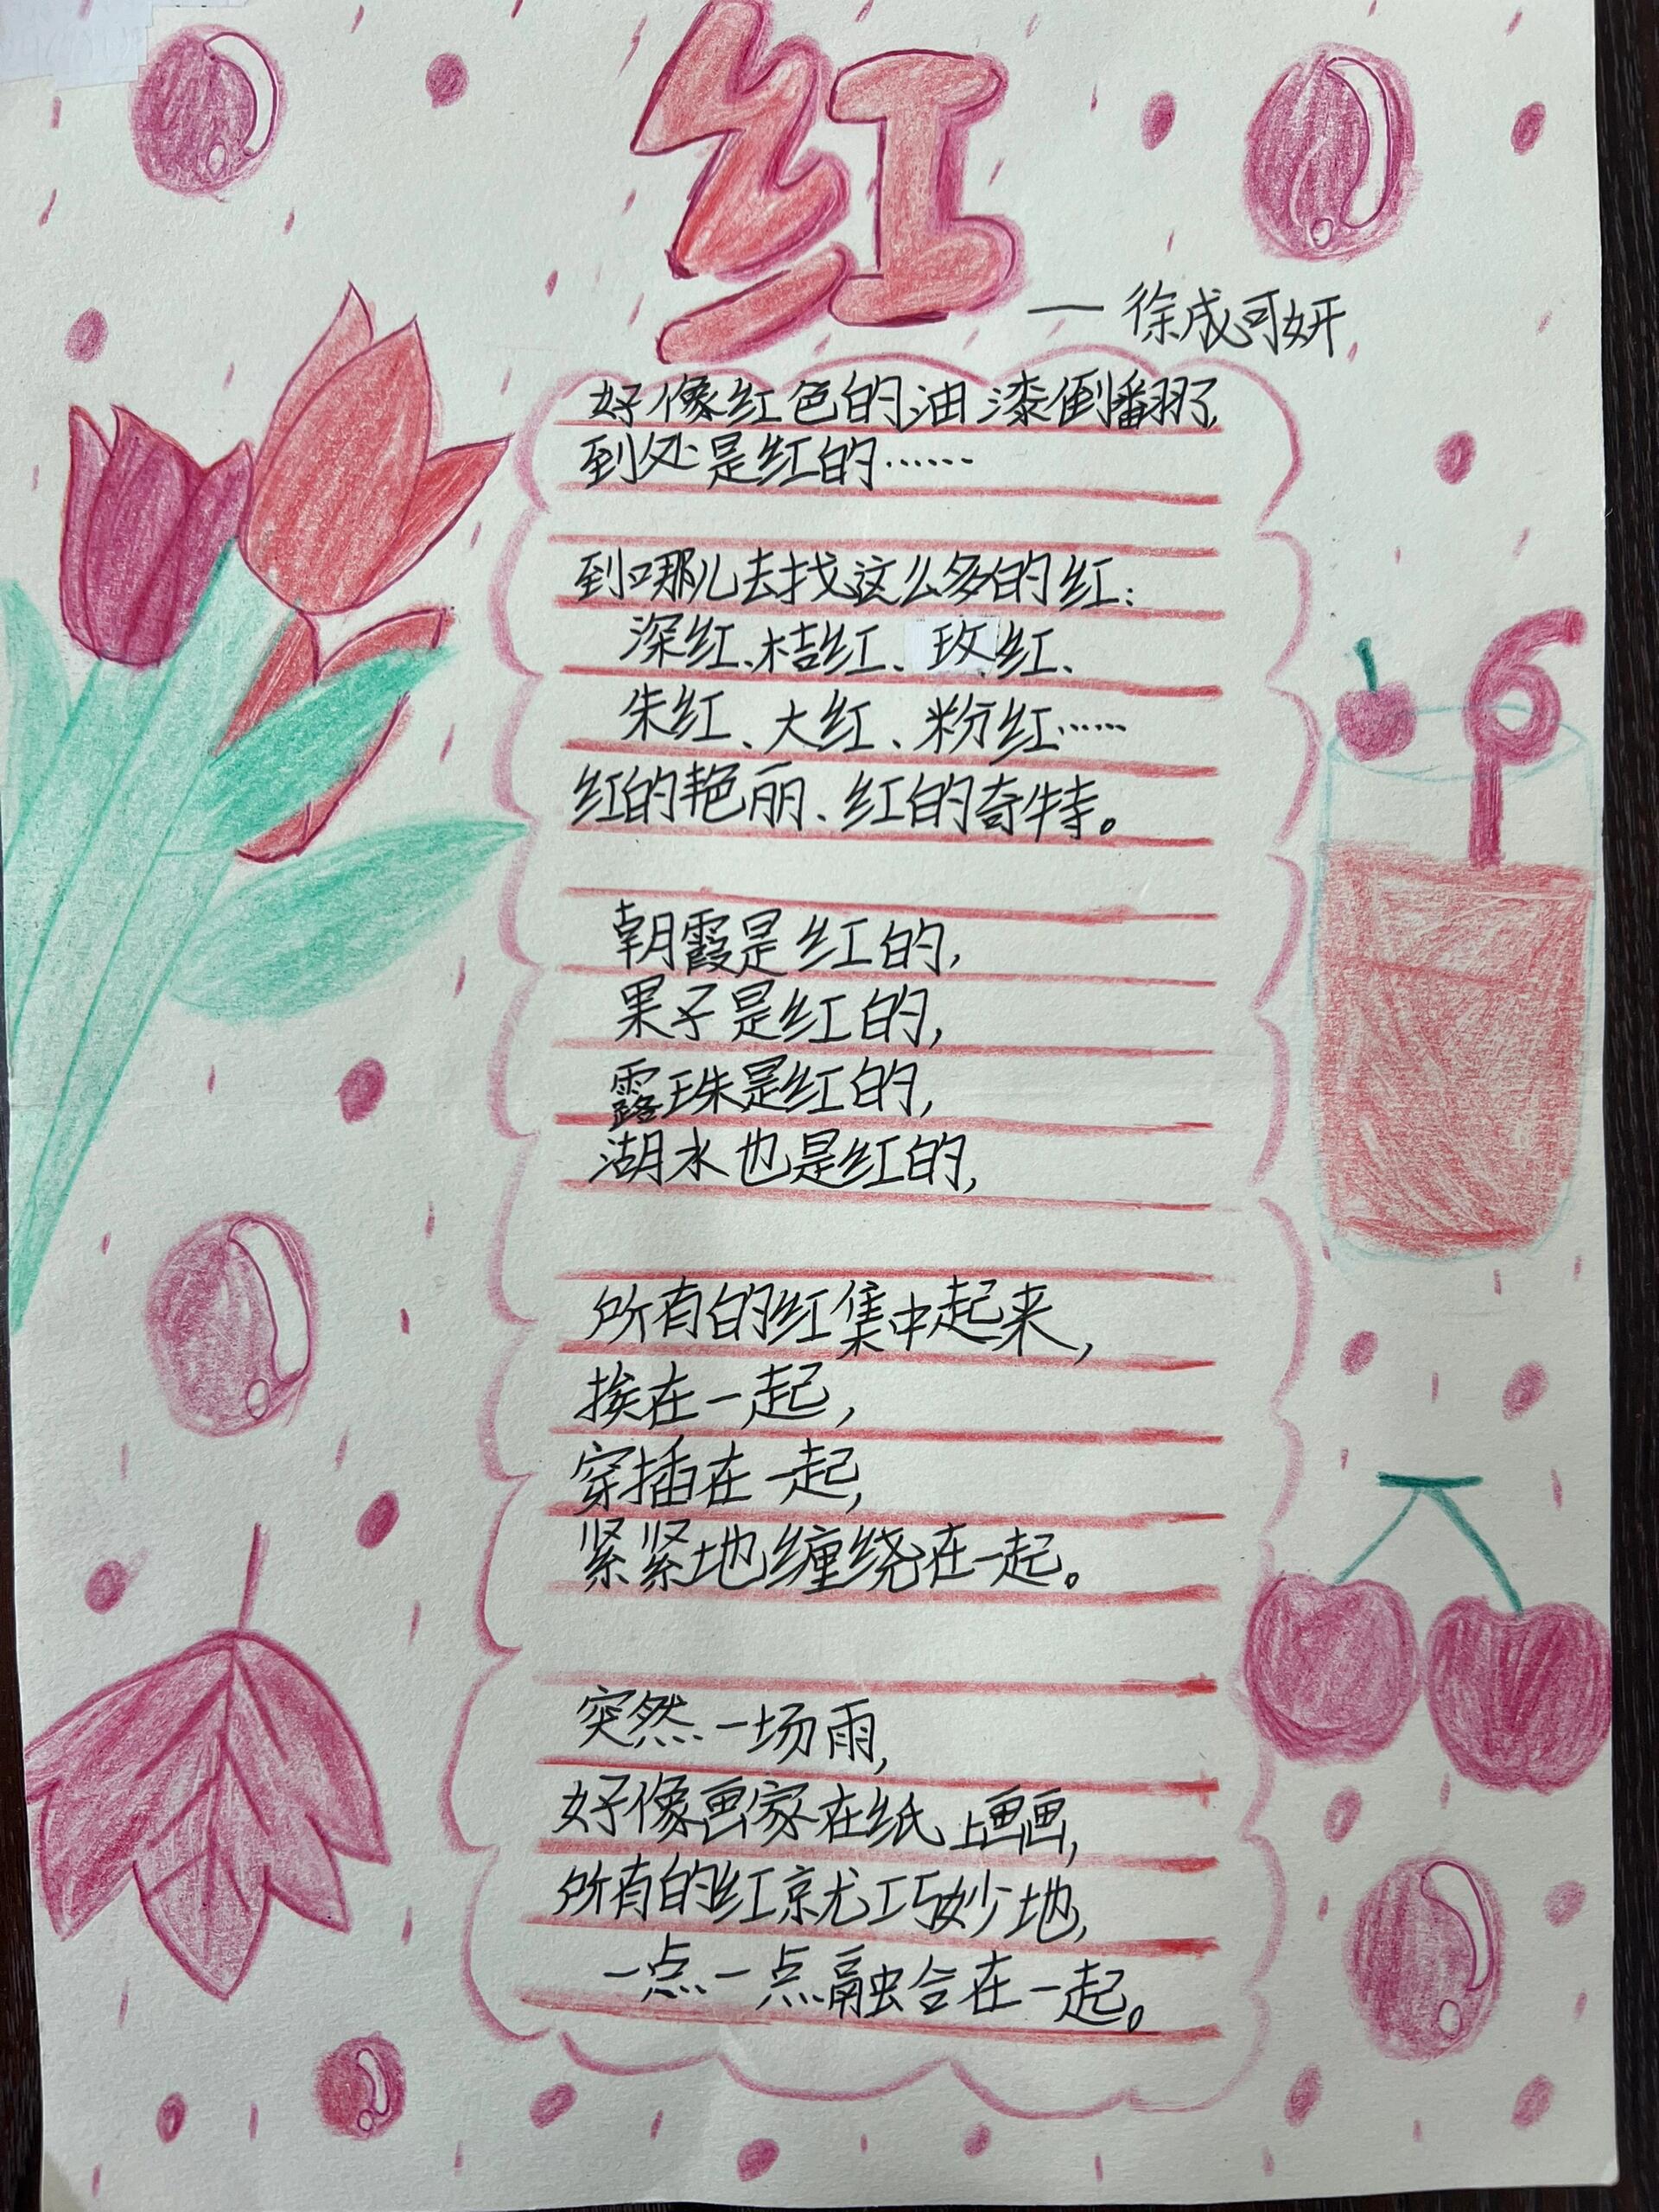 红
— 徐成可妍
好像红色的油漆倒翻了,
到处是红的……
到哪儿去找这么多的红:
深红、桔红、玫红、
朱红、大红、粉红……
红的艳丽、红的奇特。
朝霞是红的,
果子是红的,
露珠是红的,
湖水也是红的,
所有的红集中起来,
挨在一起,
穿插在一起,
紧紧地缠绕在一起。
突然一场雨,
好像画家在纸上画画,
所有的红就巧妙地,
一点一点融合在一起。